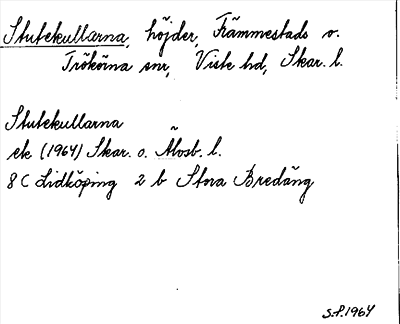 Stutekullarna, höjder, Främmestads o.
Trökörna snr, Viste hd, Skar. l.
Stutekullarna
ek (1964) Skar. o. Älvsb. l.
8 C Lidköping 2 b Stora Bredäng
S.P. 1964